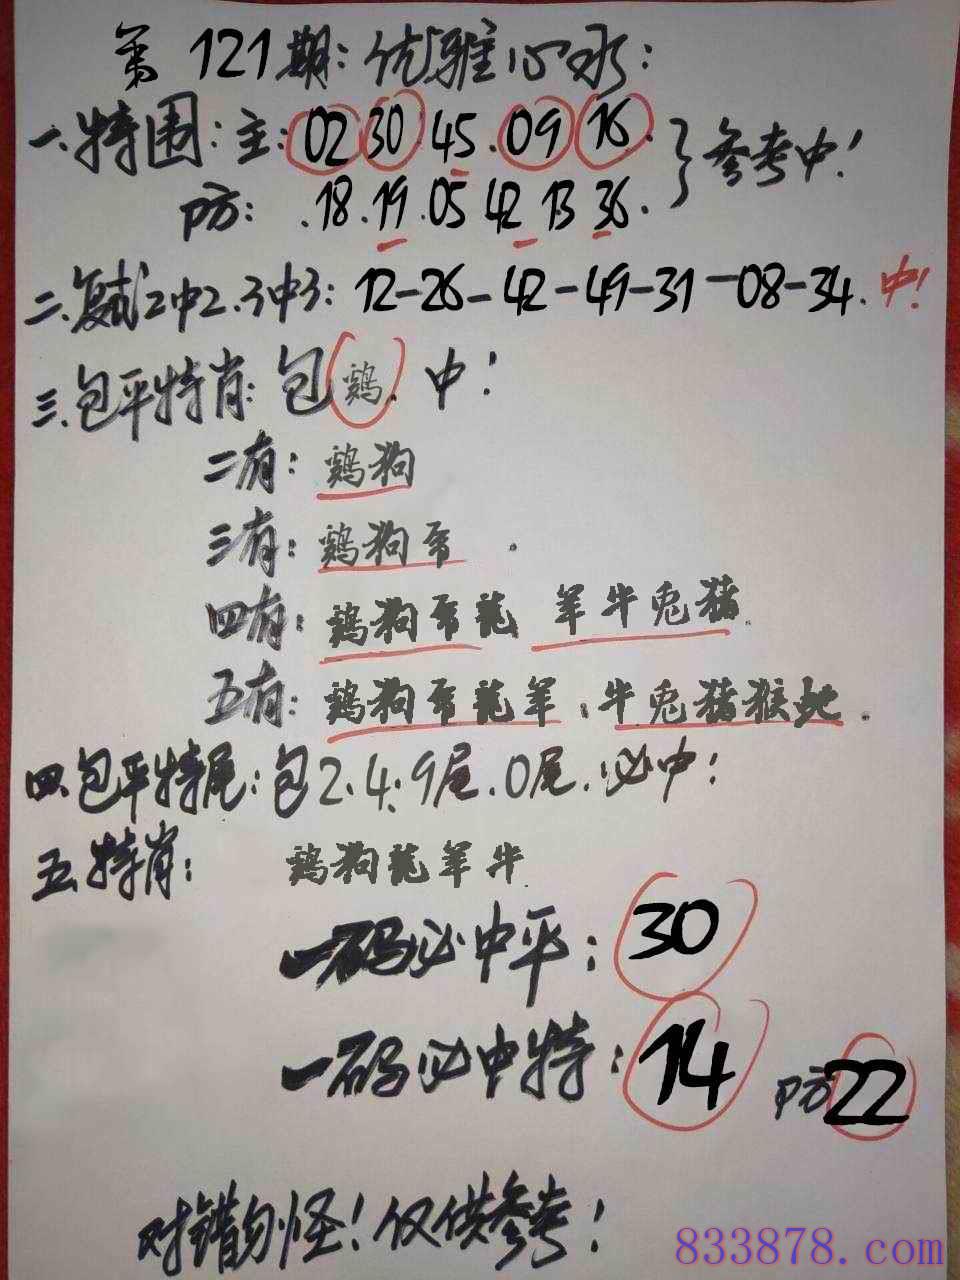 第121期:优雅心水:
一.特围:主:02 30 45.09 16.
参考中!
防:.18.19.05 42 13 36.
二.复试2中2.3中3:12-26-42-49-31-08-34.中!
三.包平特肖:包鸡.中!
二有:鸡狗
三有:鸡狗
四有:鸡狗 龍 羊牛兎猪.
五有:鸡狗 龍羊.牛兎猪猴.
四.包平特尾:包2.4.9尾.0尾.必中!
五.特肖: 鸡狗龍羊牛.
一码必中平:30
一码必中特:14 防22
对错勿怪!仅供参考!
833878.com